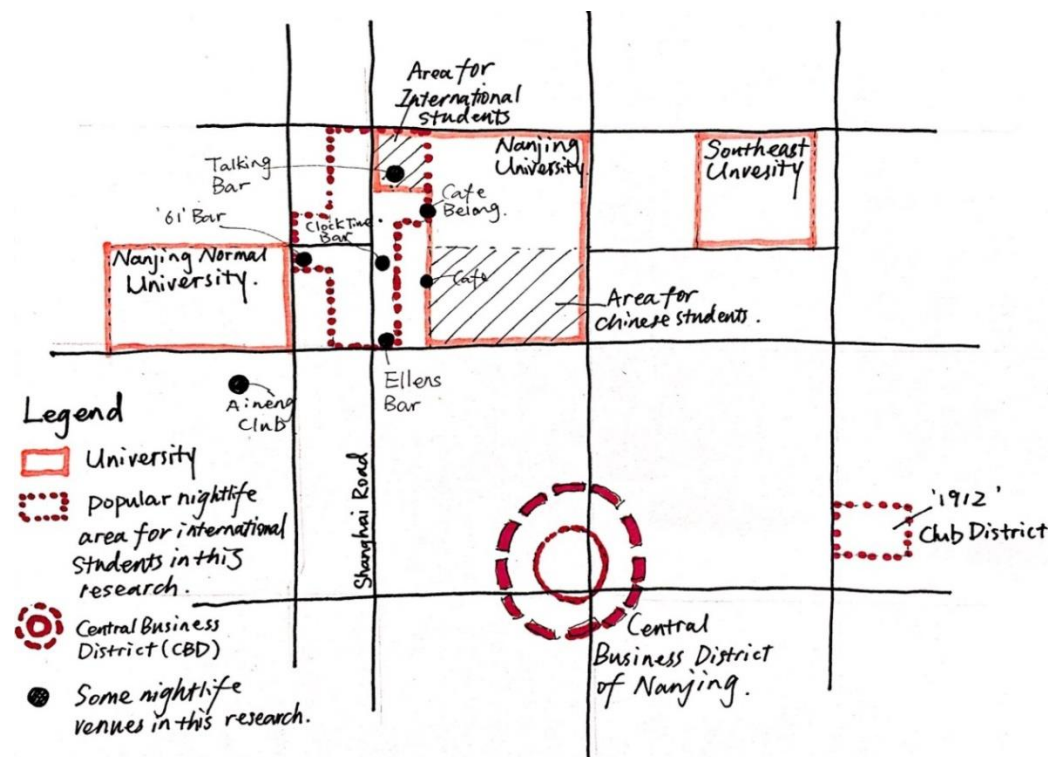 Area for
International
students
Talking
Bar
Nanjing
University
Southeast
Unvesity
Cafe
Belong.
'61' Bar
ClockTime
Bar
Nanjing Normal
University.
Cafe
Area for
chinese students.
Ellens
Bar
Aineng
Club
Legend
University
popular nightlife
area for international
students in this
research.
Central Business
District (CBD)
Some nightlife
venues in this research.
Shanghai Road
'1912'
Club District
Central
Business District
of Nanjing.